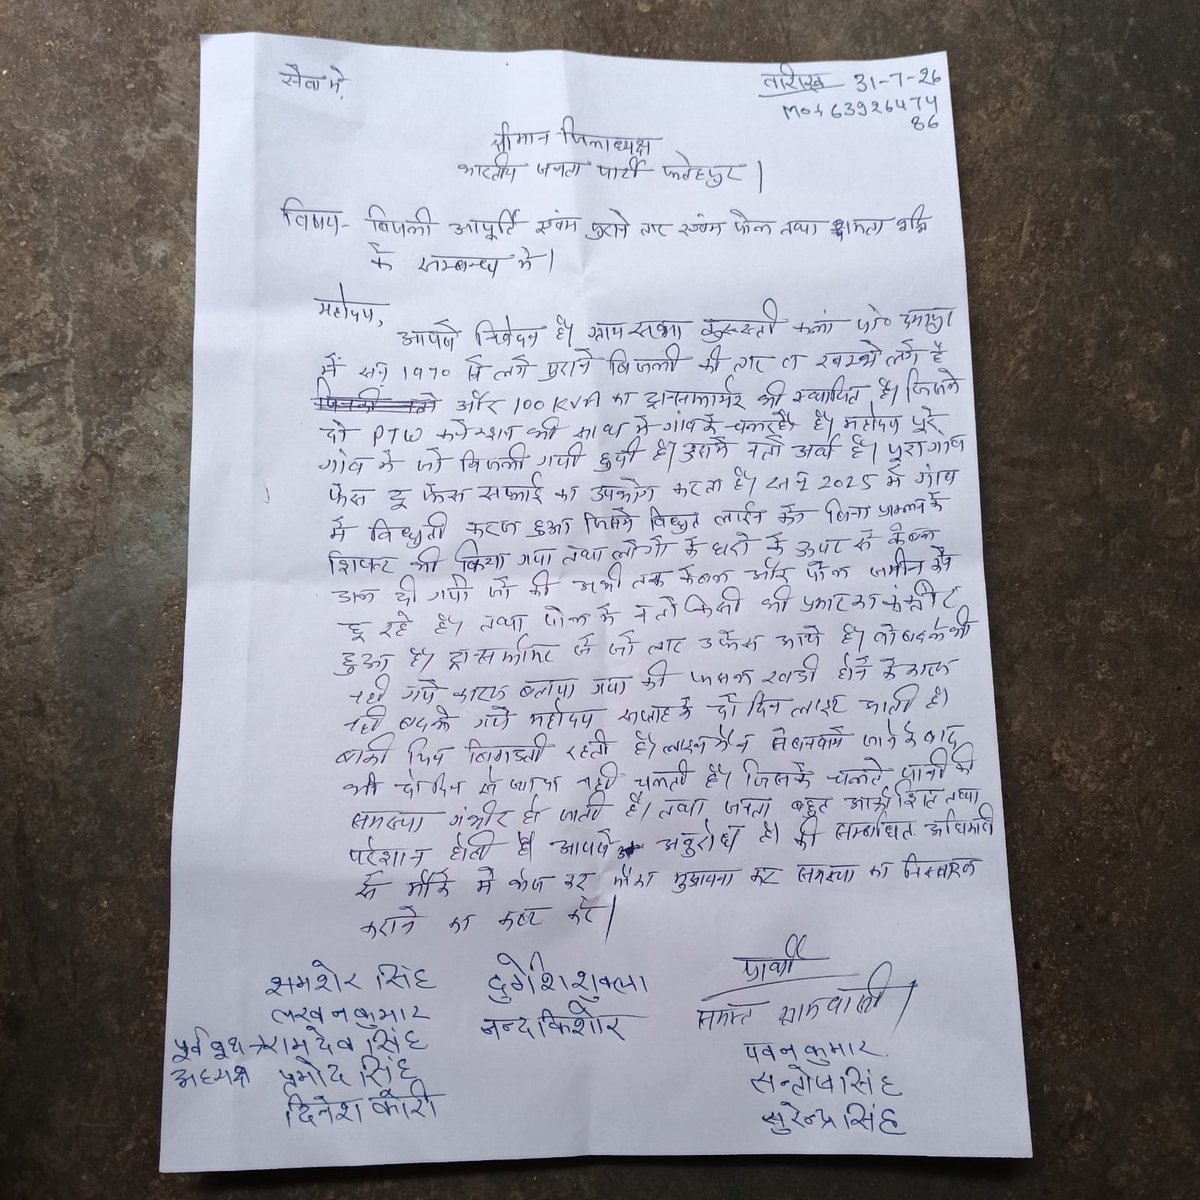 सेवा मे,
तारीख 31-7-26
Mo+ 63926474
86
श्रीमान जिलाध्यक्ष
भारतीय जनता पार्टी फतेहपुर।
विषय- बिजली आपूर्ति एंवम पुराने तार एंवम पोल तथा क्षमता वृद्धि
के सम्बन्ध मे।
महोदय,
आपसे निवेदन है। ग्राम सभा कुरुस्ती कलां पो०
में सन 1970 में लगे पुराने बिजली की तार व खम्भे लगे है
और 100 KVA का ट्रान्सफार्मर भी स्थापित है। जिसके
दो PTW कनेक्शन भी साथ में गांव के चल रहे है। महोदय पूरे
गांव मे जो बिजली गयी हुयी है। उसमें न तो अर्थ है। पूरा गांव
फेस टू फेस सप्लाई का उपयोग करता है। सन् 2025 में गांव
में विधुती करण हुआ जिसमें विधुत लाईन को बिना
शिफ्ट भी किया गया तथा लोगो के घरो के ऊपर से केबल
डाल दी गयी जो की अभी तक केबल और पोल जमीन से
छू रहे है। तथा पोल मे न तो किसी भी प्रकार का कंक्रीट
हुआ है। ट्रान्सर्फामर से जो तार उर्फेस आये है। वो बदले भी
नही गये कारण बताया गया की फसल खडी होने के कारण
नही बदले गये महोदय सप्ताह के दो दिन लाइट आती है।
बाकी दिन बिगडती रहती है। लाइन मैन से बनवाये जाने के बाद
भी दो दिन से ज्यादा नही चलती है। जिसके चलते पानी की
समस्या गंभीर हो जाती है। तथा जनता बहुत आक्रोशित तथा
परेशान होती है आपसे अनुरोध है। की सम्बधित अधिकारी
से मौके मे भेज कर मौका मुआयना कर समस्या का निस्तारण
कराने का कष्ट करे।
प्रार्थी
समस्त ग्रामवासी
शमशेर सिंह दुर्गेश शुक्ला
लखन कुमार नन्द किशोर
पूर्व बूथ → रामदेव सिंह
अध्यक्ष प्रमोद सिंह
दिनेश कोरी
पवन कुमार
सन्तोष सिंह
सुरेन्द्र सिंह